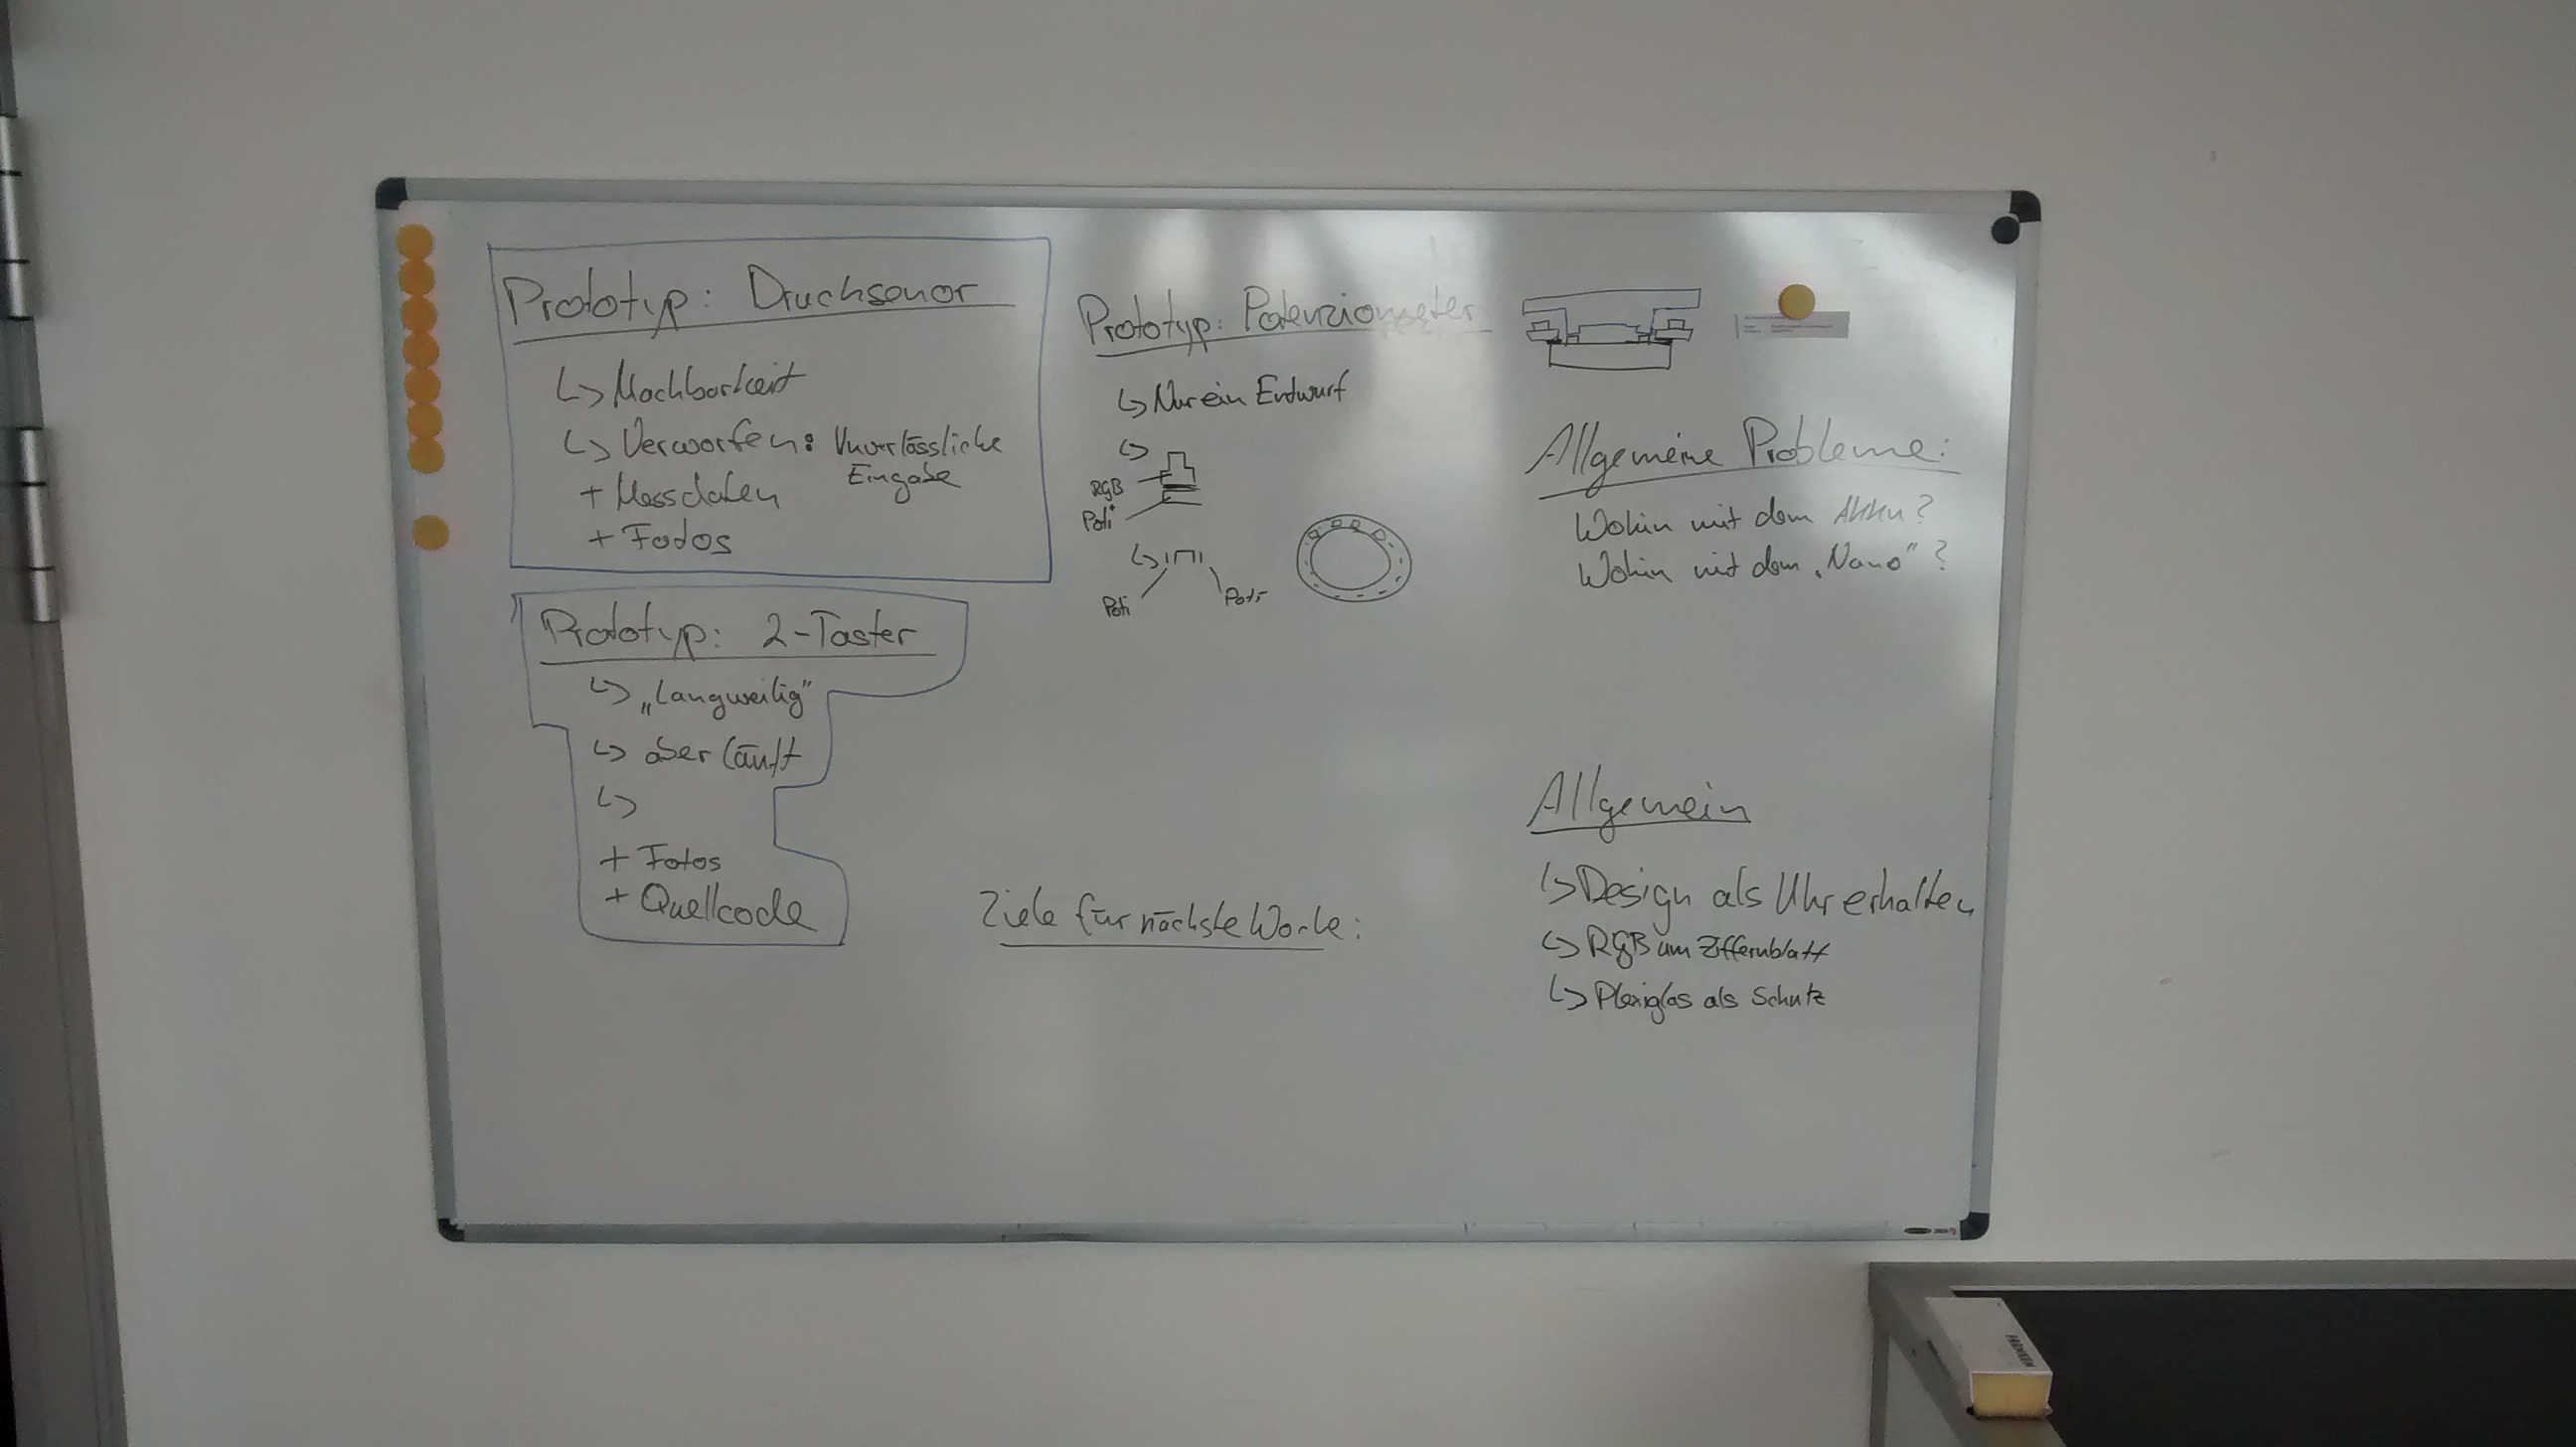 Prototyp: Drucksenor
↳ Machbarkeit
↳ Verworfen: Unverlässliche
Eingabe
+ Messdaten
+ Fotos
Prototyp: 2-Taster
↳ „Langweilig"
↳ aber läuft
↳
+ Fotos
+ Quellcode
Prototyp: Potenziometer
↳ Nur ein Entwurf
↳
RGB
Poti
↳
Poti
Poti
Ziele für nächste Woche:
Allgemeine Probleme:
Wohin mit dem Akku?
Wohin mit dem „Nano"?
Allgemein
↳ Design als Uhr erhalten
↳ RGB um Ziffernblatt
↳ Plexiglas als Schutz